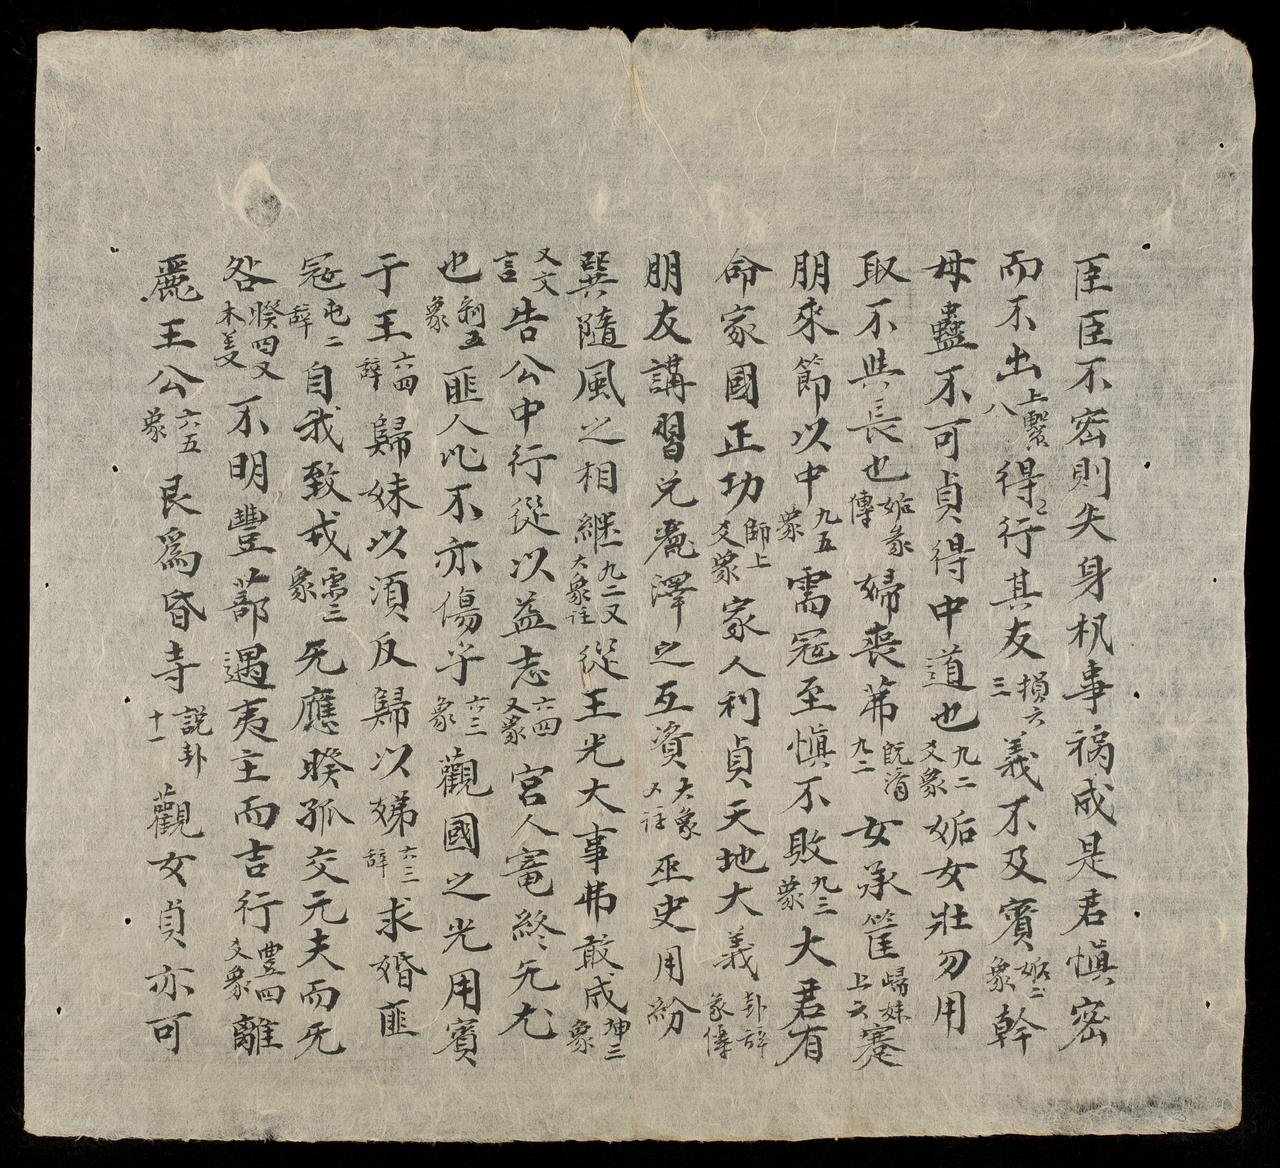 臣臣不密則失身机事禍成是君慎密
而不出上繫八得行其友損六三義不及賓姤二象幹
母蠱不可貞得中道也九二爻象姤女壯勿用
取不與長也姤彖傳婦喪茀既濟九二女承筐歸妹上六蹇
朋來節以中九五象需寇至慎不敗九三象大君有
命家國正功師上爻象家人利貞天地大義卦辞彖傳
朋友講習兌麗澤之互資大象又註巫史用紛
巽隨風之相継九二又大象註從王光大事弗敢成坤三象
又文言告公中行從以益志六四又象宮人寵終无尤
也剝五象匪人比不亦傷乎六三象觀國之光用賓
于王六四辞歸妹以須反歸以娣六三辞求婚匪
寇屯二辞自我致戎需三象无應睽孤交元夫而无
咎睽四爻不明豐蔀遇夷主而吉行豐四爻象離
麗王公六五象艮為昏寺説卦十一觀女貞亦可